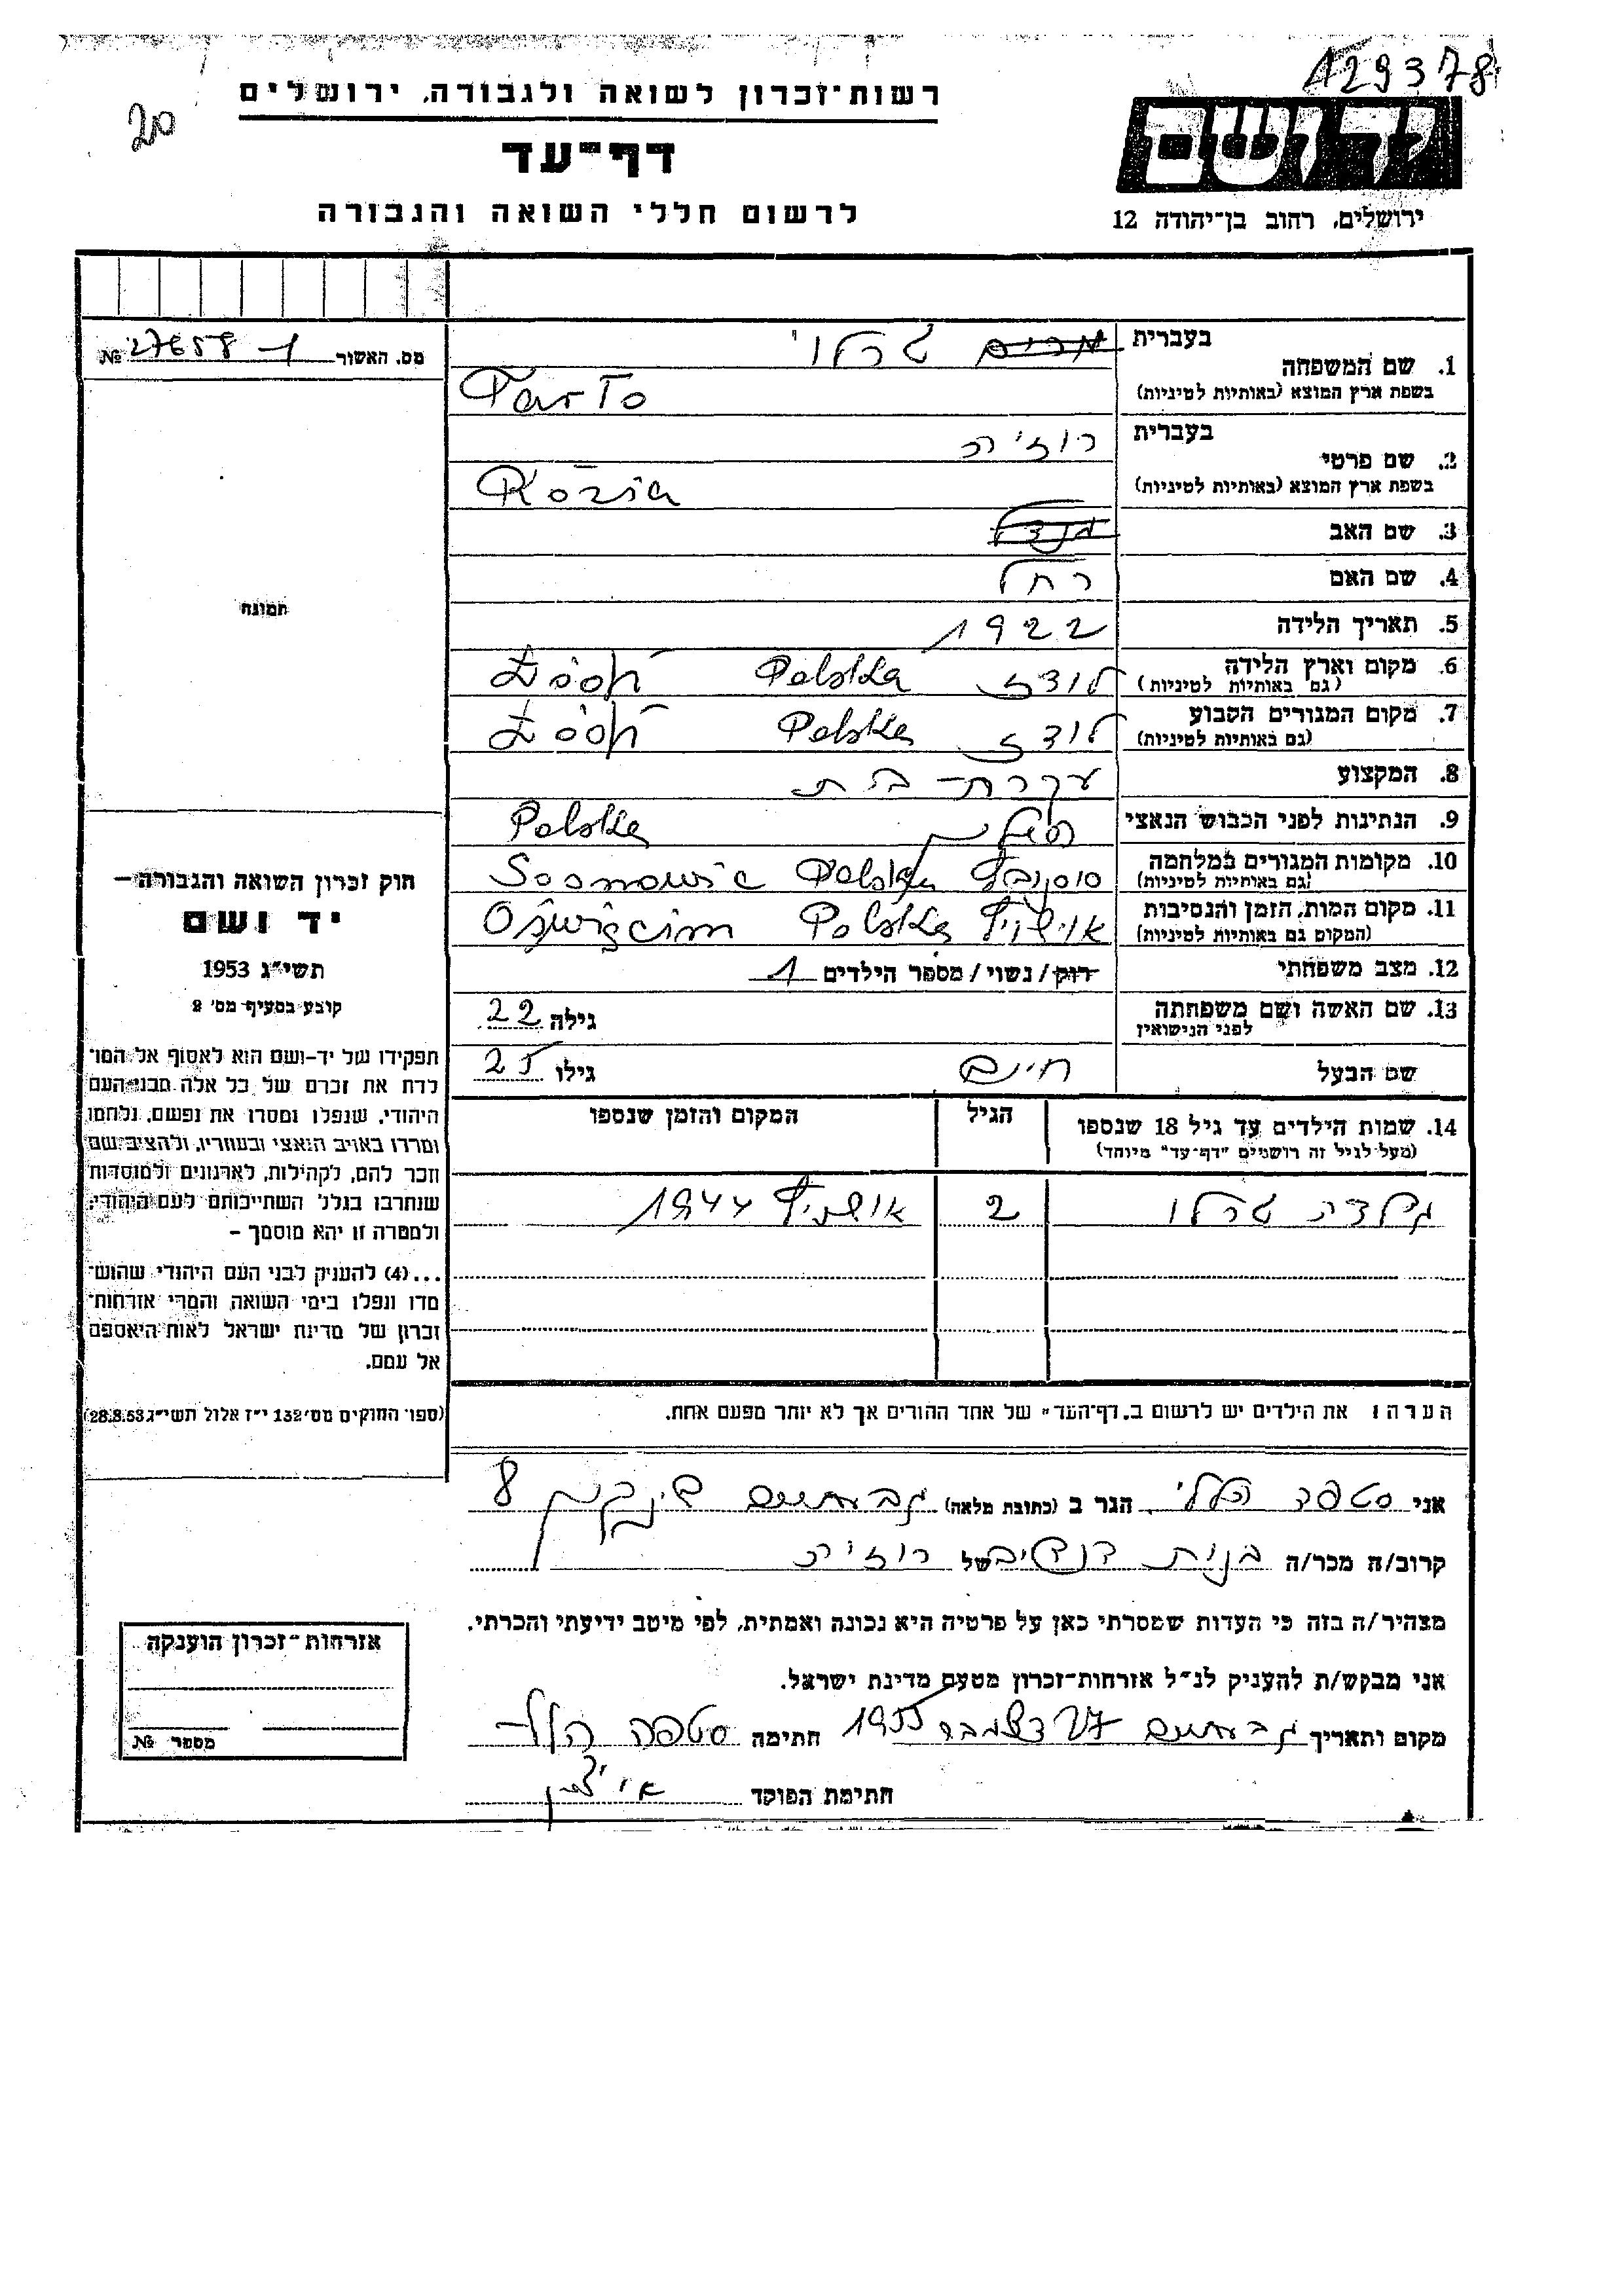 129378
20
רשות־זכרון לשואה ולגבורה, ירושלים
דף־עד
לרשום חללי השואה והגבורה
יד ושם
ירושלים, רחוב בן־יהודה 12
מס. האשור 27658-1 №
1. שם המשפחה
בעברית
טרלו
בשפת ארץ המוצא (באותיות לטיניות)
TarTo
2. שם פרטי
בעברית רוזיה
בשפת ארץ המוצא (באותיות לטיניות)
Rozia
3. שם האב
4. שם האם רחל
5. תאריך הלידה 1922
6. מקום וארץ הלידה לודז Polska Łódź
(גם באותיות לטיניות)
7. מקום המגורים הקבוע לודז Polska Łódź
(גם באותיות לטיניות)
8. המקצוע עקרת-בית
9. הנתינות לפני הכבוש הנאצי פולין Polska
10. מקומות המגורים במלחמה סוסנובץ Polska Sosnowic
(גם באותיות לטיניות)
11. מקום המות, הזמן והנסיבות אושויץ Polska Oświęcim
(המקום גם באותיות לטיניות)
12. מצב משפחתי רוק/נשוי/מספר הילדים 1
13. שם האשה ושם משפחתה גילה 22
לפני הנישואין
שם הבעל חיים גילו 25
14. שמות הילדים עד גיל 18 שנספו הגיל המקום והזמן שנספו
(מעל לגיל זה רושמים "דף־עד" מיוחד)
גילדה טרלו 2 אושויץ 1944
הערה: את הילדים יש לרשום ב„דף־העד" של אחד ההורים אך לא יותר מפעם אחת.
תמונה
חוק זכרון השואה והגבורה —
יד ושם
תשי"ג 1953
קובע בסעיף מס' 2
תפקידו של יד-ושם הוא לאסוף אל המו־
לדת את זכרם של כל אלה מבני-העם
היהודי, שנפלו ומסרו את נפשם, נלחמו
ומרדו באויב הנאצי ובעוזריו, ולהציב שם
וזכר להם, לקהילות, לארגונים ולמוסדות
שנחרבו בגלל השתייכותם לעם היהודי;
ולמטרה זו יהא מוסמך —
...(4) להעניק לבני העם היהודי שהוש־
מדו ונפלו בימי השואה והמרי אזרחות־
זכרון של מדינת ישראל לאות היאספם
אל עמם.
(ספר החוקים מס' 132 י"ז אלול תשי"ג 28.8.53)
אני סטפה הלל הגר ב (כתובת מלאה) גבעתיים 8
קרוב/ה מכר/ה של רוזיה
מצהיר/ה בזה כי העדות שמסרתי כאן על פרטיה היא נכונה ואמתית, לפי מיטב ידיעתי והכרתי.
אני מבקש/ת להעניק לנ"ל אזרחות־זכרון מטעם מדינת ישראל.
מקום ותאריך גבעתיים 27 דצמבר 1955 חתימה סטפה הלל
חתימת הפוקד
אזרחות־זכרון הוענקה
מספר №